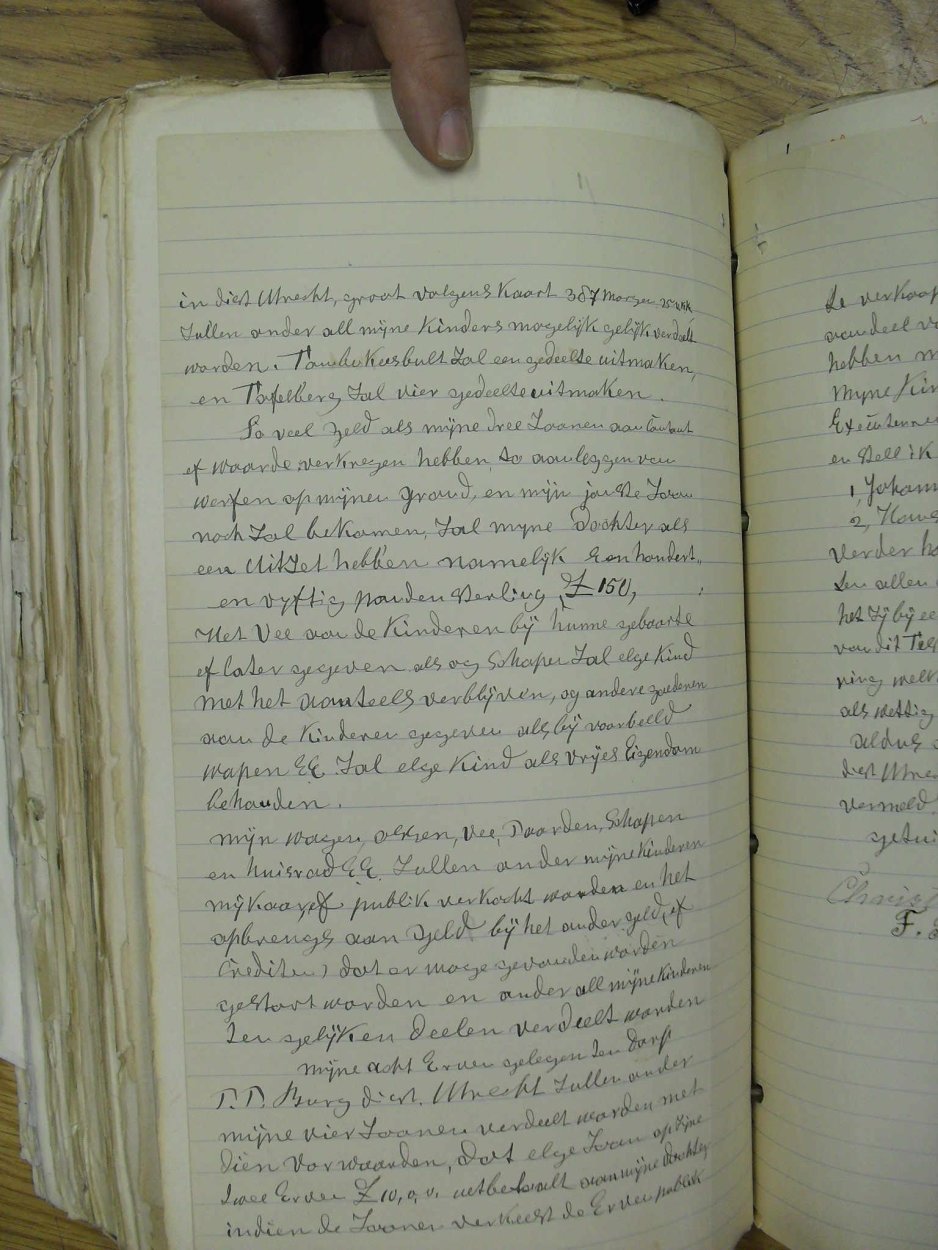 in dist Utrecht, groot volgens Kaart 387 Morgen
Zullen onder all mijne Kinders mogelijk gelijk verdeelt
worden. Zal een gedeelte uitmaken,
en Tafelberg Zal vier gedeelte uitmaken.
So veel geld als mijne dree Zoonen aan Contant
of waarde verkregen hebben, to aanleggen van
werfen op mijnen grond, en mijn jonste Zoon
noch Zal bekomen, Zal myne Dochter als
een Uitzet hebben namelijk Een hondert
en vyftig ponden Sterling £ 150,
Het Vee aan de Kinderen bÿ hunne geboorte
of later gegeven als og Schapen Zal elge Kind
met het aanteels verblijven, og andere goederen
aan de Kinderen gegeven als bÿ voorbeeld
wapen &&. Zal elge Kind als vrijes Eigendom
behouden.
Mijn wagen, ossen, vee, Paarden, Schapen
en huisrad && Zullen onder mijne Kinderen
publik verkocht worden en het
opbrengs aan geld bÿ het ander geld, of
Crediten) dat er moge gevonden worden
gestort worden en onder all mijne Kinderen
Zen gelijken deelen verdeelt worden
Mijne acht Erven gelegen Zen dorp
P.P. Burg dist. Utrecht Zullen onder
mijne vier Zoonen verdeelt worden met
dien Vorwaarden, dat elge Zoon op Zijne
twee Erven £ 10,0,0. uitbetaalt aan mijne dochter
indien de Zoonen verkiest de Erven publik
de verkoop
aandeel
hebben
Myne Kin
en Stell ik
1, Johann
2,
verder
den allen
het Zÿ bÿ ee
van dit Tes
ning welk
als wettig
aldus
dist Utre
vermeld
getui
Christ
F.